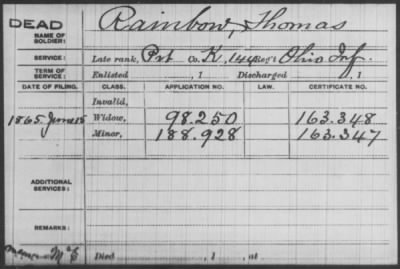 DEAD
Rainbow, Thomas
NAME OF SOLDIER:
SERVICE: Late rank, Pvt Co. K, 144 Reg't Ohio Inf.
TERM OF SERVICE: Enlisted , 1 Discharged , 1
DATE OF FILING. CLASS. APPLICATION NO. LAW. CERTIFICATE NO.
Invalid,
1865 June 15 Widow, 98.250 163.348
Minor, 188.928 163.347
ADDITIONAL SERVICES:
REMARKS:
Died , 1 , at